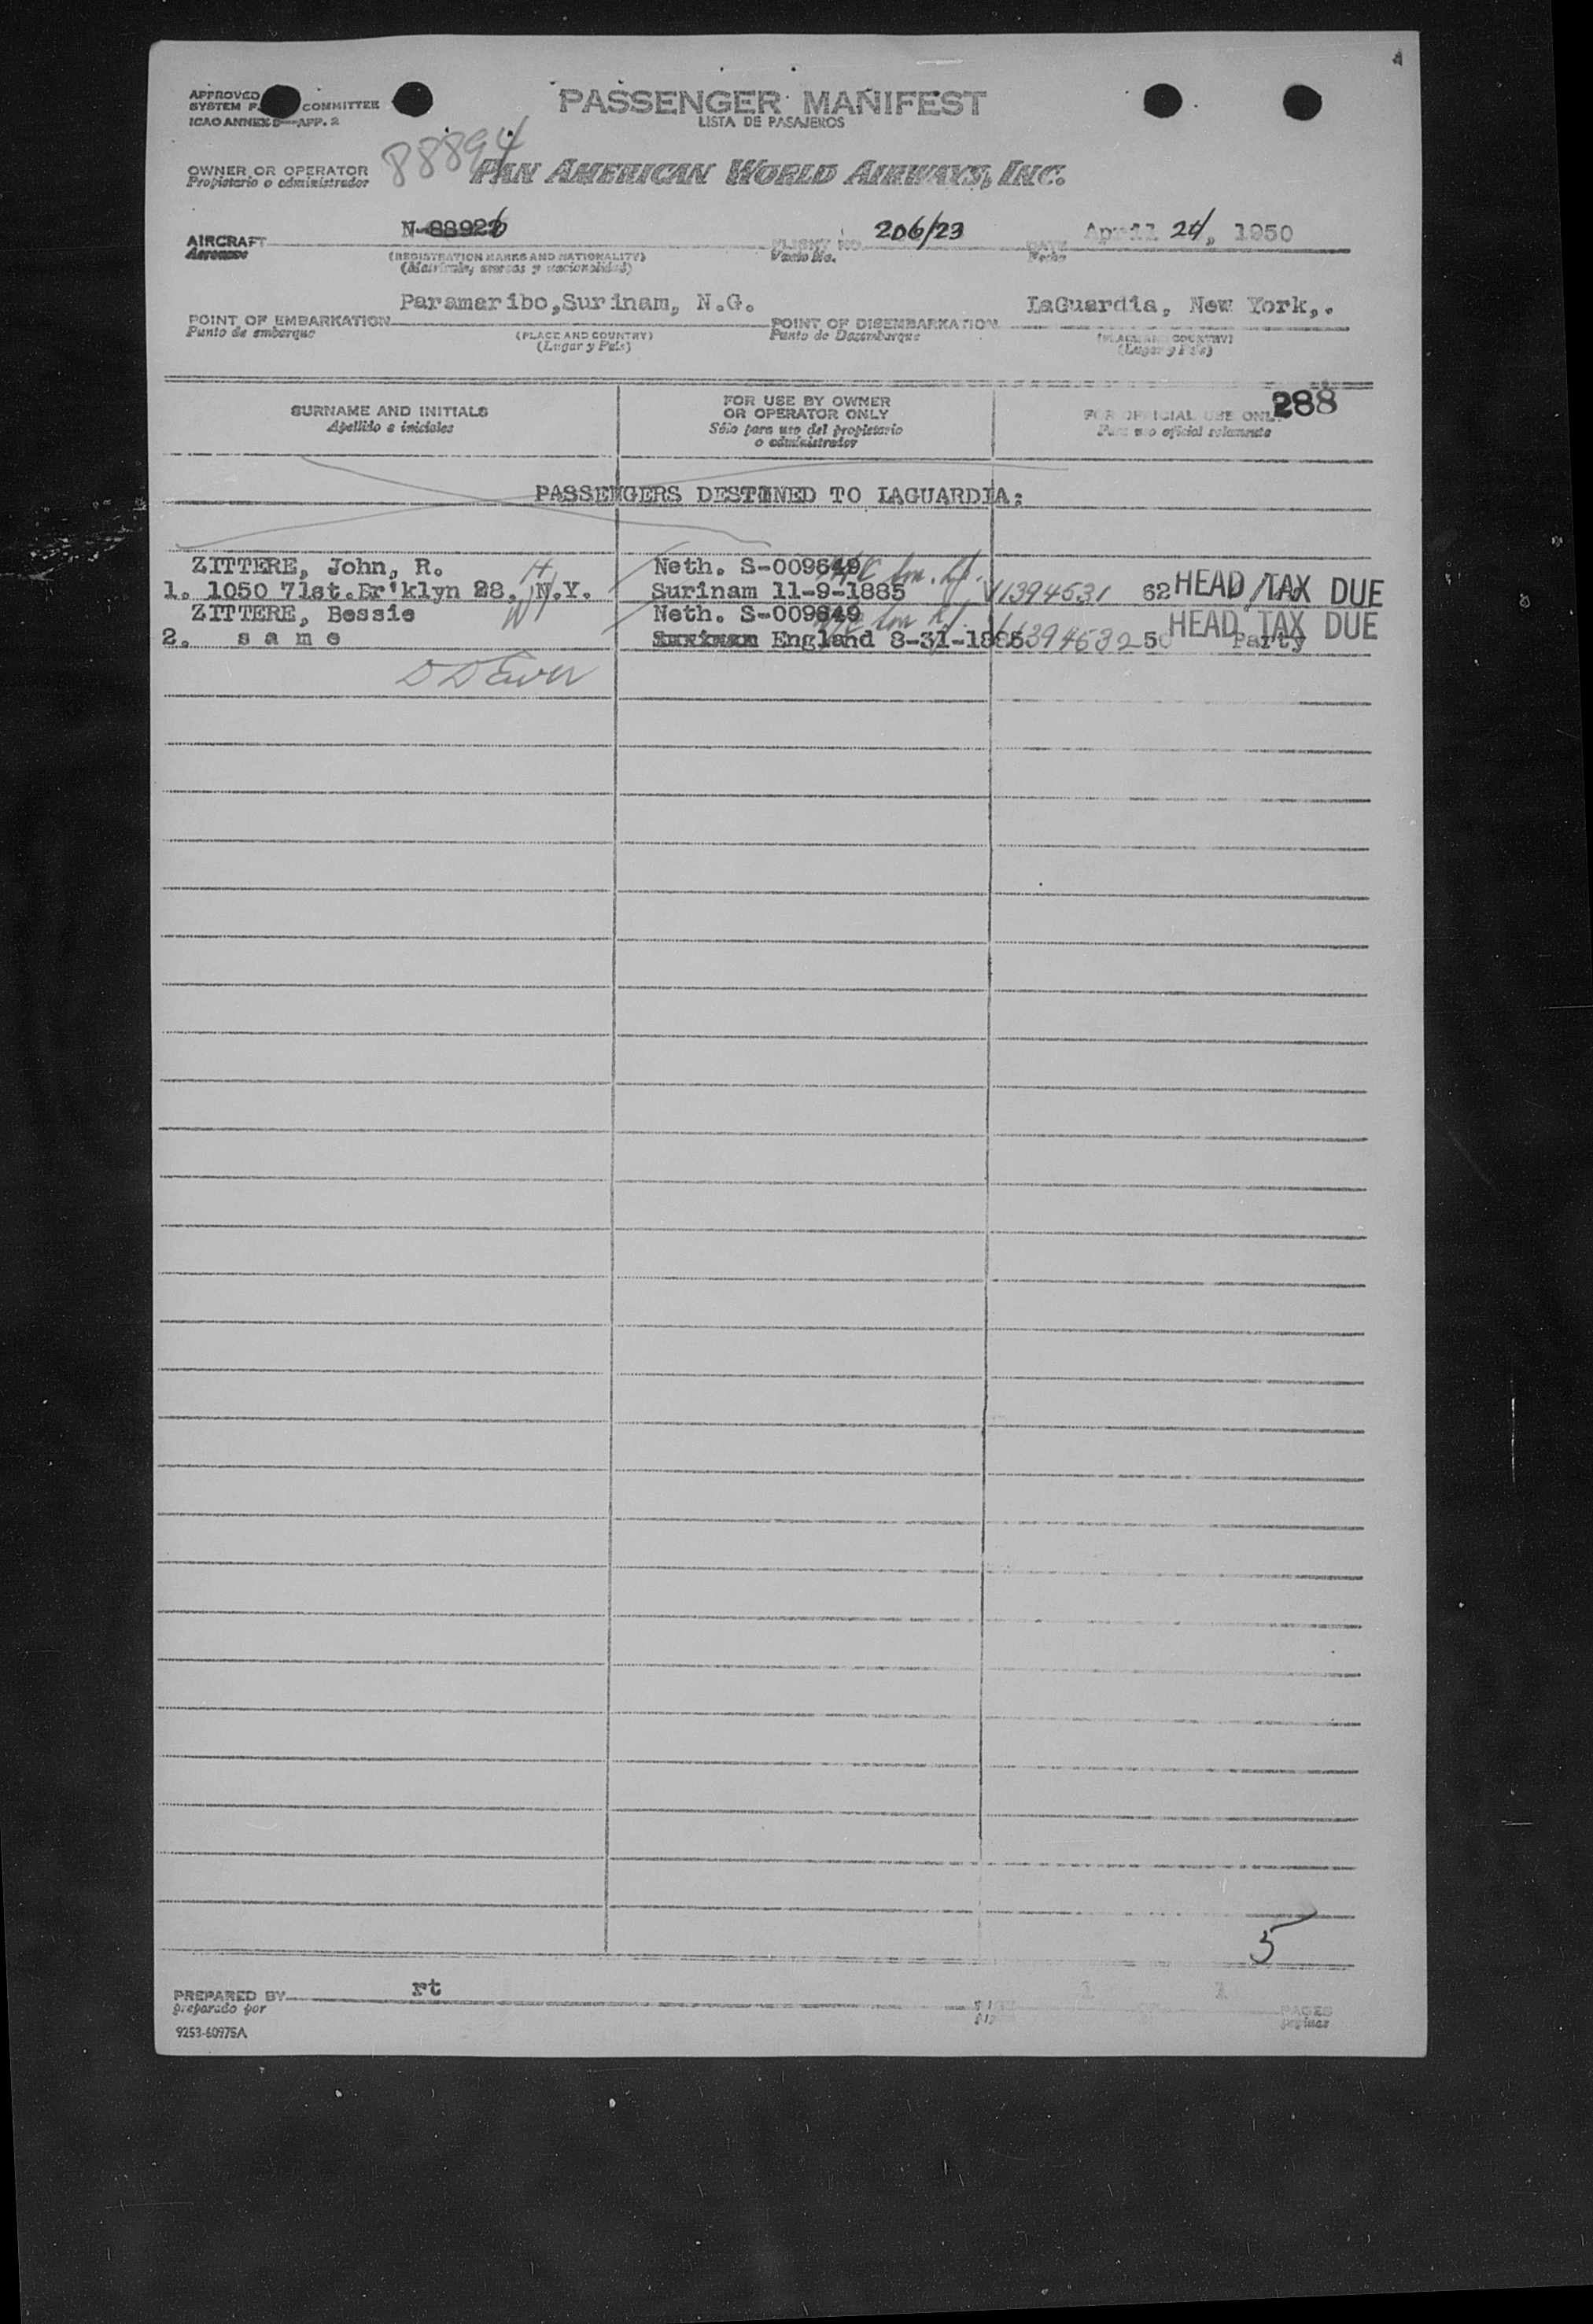 APPROVED
SYSTEM F COMMITTEE
ICAO ANNEX 9—APP. 2
PASSENGER MANIFEST
LISTA DE PASAJEROS
88894
OWNER OR OPERATOR
Propietario o administrador
PAN AMERICAN WORLD AIRWAYS, INC.
AIRCRAFT N-88926 FLIGHT NO. 206/23 DATE April 24, 1950
Aeronave (REGISTRATION MARKS AND NATIONALITY) Vuelo No. Fecha
(Matrícula, marcas y nacionalidad)
POINT OF EMBARKATION Paramaribo,Surinam, N.G. POINT OF DISEMBARKATION LaGuardia, New York,.
Punto de embarque (PLACE AND COUNTRY) Punto de Desembarque (PLACE AND COUNTRY)
(Lugar y País) (Lugar y País)
288
SURNAME AND INITIALS
Apellido e iniciales
FOR USE BY OWNER
OR OPERATOR ONLY
Sólo para uso del propietario
o administrador
FOR OFFICIAL USE ONLY
Para uso oficial solamente
PASSENGERS DESTINED TO LAGUARDIA:
ZITTERE, John, R. H Neth. S-009649
1. 1050 71st.Br'klyn 28, N.Y. Surinam 11-9-1885 V1394531 62 HEAD TAX DUE
ZITTERE, Bessie W Neth. S-009649
2. s a m e England 8-31-1885 V1394532 50 HEAD TAX DUE Party
5
PREPARED BY rt 1 1 PAGES
preparado por páginas
9253-60975A